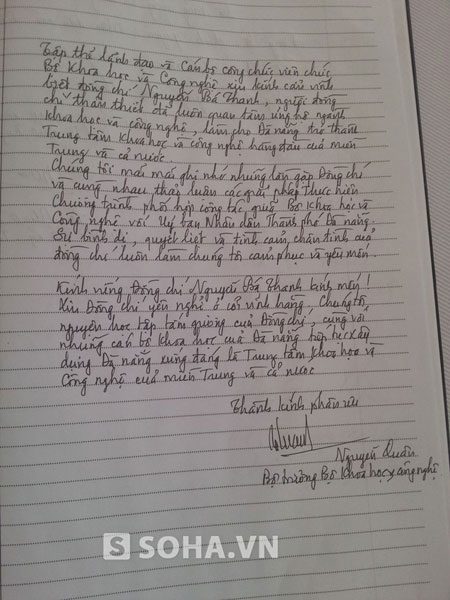 Tập thể lãnh đạo và Cán bộ công chức viên chức
Bộ Khoa học và Công nghệ xin kính cẩn vĩnh
biệt đồng chí Nguyễn Bá Thanh, người đồng
chí thân thiết đã luôn quan tâm ủng hộ ngành
khoa học và công nghệ, làm cho Đà nẵng trở thành
Trung tâm khoa học và công nghệ hàng đầu của miền
Trung và cả nước.
Chúng tôi mãi mãi ghi nhớ những lần gặp Đồng chí
và cùng nhau thảo luận các giải pháp thực hiện
Chương trình phối hợp công tác giữa Bộ Khoa học và
Công nghệ với Uỷ ban Nhân dân Thành phố Đà nẵng.
Sự bình dị, quyết liệt và tình cảm chân tình của
đồng chí luôn làm chúng tôi cảm phục và yêu mến.
Kính viếng Đồng chí Nguyễn Bá Thanh kính mến!
Xin Đồng chí yên nghỉ ở cõi vĩnh hằng. Chúng tôi
nguyện học tập tấm gương của Đồng chí, cùng với
những cán bộ khoa học của Đà nẵng tiếp tục xây
dựng Đà nẵng xứng đáng là Trung tâm khoa học và
Công nghệ của miền Trung và cả nước
Thành kính phân ưu
Nguyễn Quân
Bộ trưởng Bộ Khoa học và công nghệ
S SOHA.VN